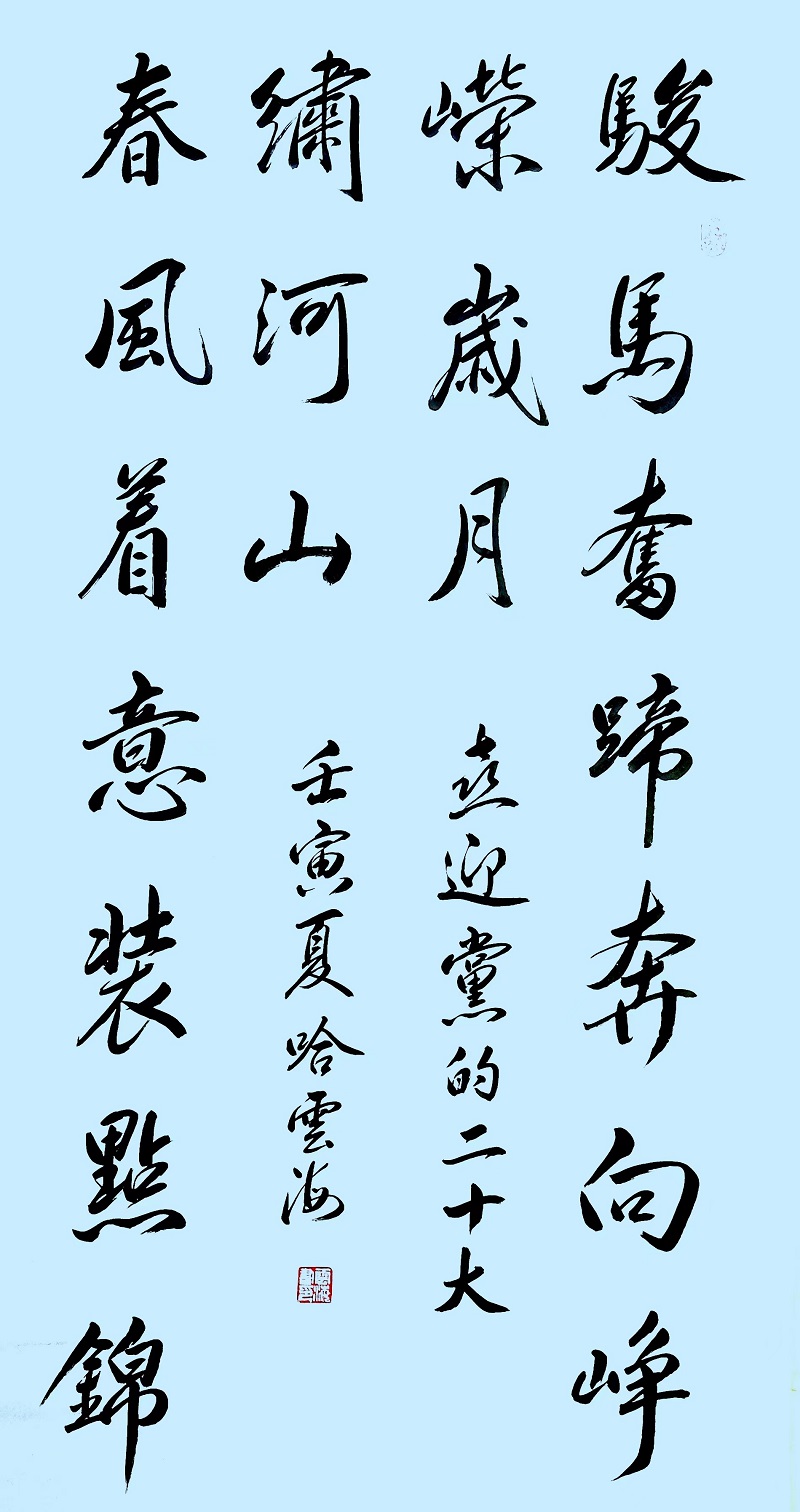 駿馬奮蹄奔向崢
嶸歲月
喜迎黨的二十大
春風着意裝點錦
繡河山
壬寅夏哈雲海